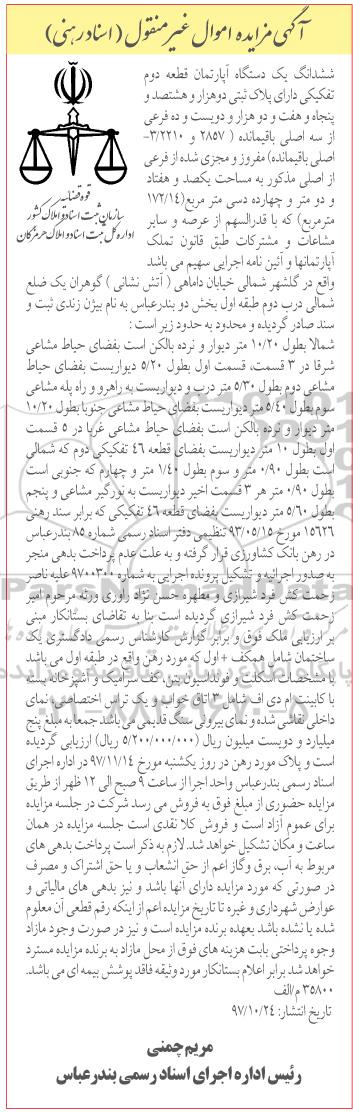 آگهی مزایده اموال غیرمنقول (اسناد رهنی)
قوه قضائیه
سازمان ثبت اسناد و املاک کشور
اداره کل ثبت اسناد و املاک هرمزگان
ششدانگ یک دستگاه آپارتمان قطعه دوم
تفکیکی دارای پلاک ثبتی دوهزار و هشتصد و
پنجاه و هفت و دو هزار و دویست و ده فرعی
از سه اصلی باقیمانده ( ۲۸۵۷ و ۳/۲۲۱۰-
اصلی باقیمانده) مفروز و مجزی شده از فرعی
از اصلی مذکور به مساحت یکصد و هفتاد
و دو متر و چهارده دسی متر مربع(۱۷۲/۱۴
مترمربع) که با قدرالسهم از عرصه و سایر
مشاعات و مشترکات طبق قانون تملک
آپارتمانها و آئین نامه اجرایی سهیم می باشد
واقع در گلشهر شمالی خیابان داماهی ( آتش نشانی ) گوهران یک ضلع
شمالی درب دوم طبقه اول بخش دو بندرعباس به نام بیژن زندی ثبت و
سند صادر گردیده و محدود به حدود زیر است :
شمالا بطول ۱۰/۲۰ متر دیوار و نرده بالکن است بفضای حیاط مشاعی
شرقا در ۳ قسمت، قسمت اول بطول ۵/۲۰ دیواریست بفضای حیاط
مشاعی دوم بطول ۵/۳۰ متر درب و دیواریست به راهرو و راه پله مشاعی
سوم بطول ۵/۴۰ متر دیواریست بفضای حیاط مشاعی جنوبا بطول ۱۰/۲۰
متر دیوار و نرده بالکن است بفضای حیاط مشاعی غربا در ۵ قسمت
اول بطول ۱۰ متر دیواریست بفضای قطعه ۴۶ تفکیکی دوم که شمالی
است بطول ۰/۹۰ متر و سوم بطول ۱/۴۰ متر و چهارم که جنوبی است
بطول ۰/۹۰ متر هر ۳ قسمت اخیر دیواریست به نورگیر مشاعی و پنجم
بطول ۵/۶۰ متر دیواریست بفضای قطعه ۴۶ تفکیکی که برابر سند رهنی
۱۵۶۲۶ مورخ ۹۳/۰۵/۱۵ تنظیمی دفتر اسناد رسمی شماره ۸۵ بندرعباس
در رهن بانک کشاورزی قرار گرفته و به علت عدم پرداخت بدهی منجر
به صدور اجرائیه و تشکیل پرونده اجرایی به شماره ۹۷۰۰۳۰۰ علیه ناصر
زحمت کش فرد شیرازی و مطهره حسن نژاد راوری ورثه مرحوم امیر
زحمت کش فرد شیرازی گردیده است بنا به تقاضای بستانکار مبنی
بر ارزیابی ملک فوق و برابر گزارش کارشناس رسمی دادگستری یک
ساختمان شامل همکف + اول که مورد رهن واقع در طبقه اول می باشد
با مشخصات اسکلت و فونداسیون بتن، کف سرامیک و آشپزخانه بسته
با کابینت ام دی اف شامل ۳ اتاق خواب و یک تراس اختصاصی، نمای
داخلی نقاشی شده و نمای بیرونی سنگ قدیمی می باشد جمعا به مبلغ پنج
میلیارد و دویست میلیون ریال (۵/۲۰۰/۰۰۰/۰۰۰ ریال) ارزیابی گردیده
است و پلاک مورد رهن در روز یکشنبه مورخ ۹۷/۱۱/۱۴ در اداره اجرای
اسناد رسمی بندرعباس واحد اجرا از ساعت ۹ صبح الی ۱۲ ظهر از طریق
مزایده حضوری از مبلغ فوق به فروش می رسد شرکت در جلسه مزایده
برای عموم آزاد است و فروش کلا نقدی است جلسه مزایده در همان
ساعت و مکان تشکیل خواهد شد. لازم به ذکر است پرداخت بدهی های
مربوط به آب، برق وگاز اعم از حق انشعاب و یا حق اشتراک و مصرف
در صورتی که مورد مزایده دارای آنها باشد و نیز بدهی های مالیاتی و
عوارض شهرداری و غیره تا تاریخ مزایده اعم از اینکه رقم قطعی آن معلوم
شده یا نشده باشد بعهده برنده مزایده است و نیز در صورت وجود مازاد
وجوه پرداختی بابت هزینه های فوق از محل مازاد به برنده مزایده مسترد
خواهد شد برابر اعلام بستانکار مورد وثیقه فاقد پوشش بیمه ای می باشد.
۳۵۸۰۰ م/الف
تاریخ انتشار: ۹۷/۱۰/۲۴
مریم چمنی
رئیس اداره اجرای اسناد رسمی بندرعباس